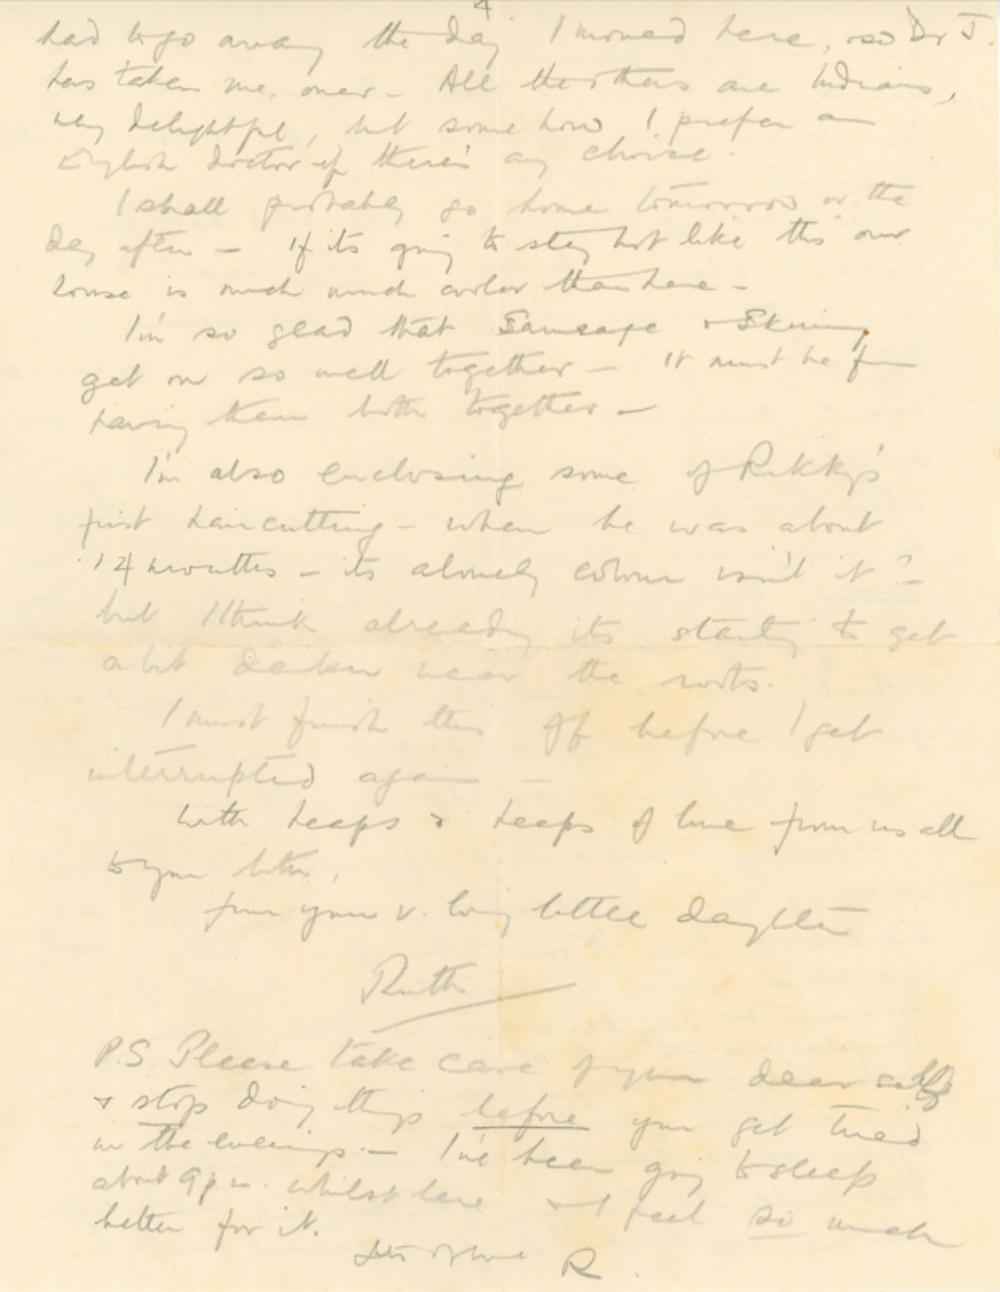 4
had to go away the day I moved here, so Dr J.
has taken me over - All the others are Indians,
very delightful, but somehow I prefer an
English doctor if there's any choice.
I shall probably go home tomorrow or the
day after - If its going to stay hot like this our
house is much much cooler than here -
I'm so glad that Sausage & Skinny
get on so well together - it must be fun
having them both together -
I'm also enclosing some of Rikky's
first haircutting - when he was about
14 months - its a lovely colour isn't it? -
but I think already its starting to get
a bit darker near the roots.
I must finish this off before I get
interrupted again -
With heaps & heaps of love from us all
to you both,
from your v. loving little daughter
Ruth
P.S. Please take care of your dear self
& stop doing things before you get tired
in the evenings. - I've been going to sleep
about 9 p.m. whilst here and feel so much
better for it.
Lots of love R.